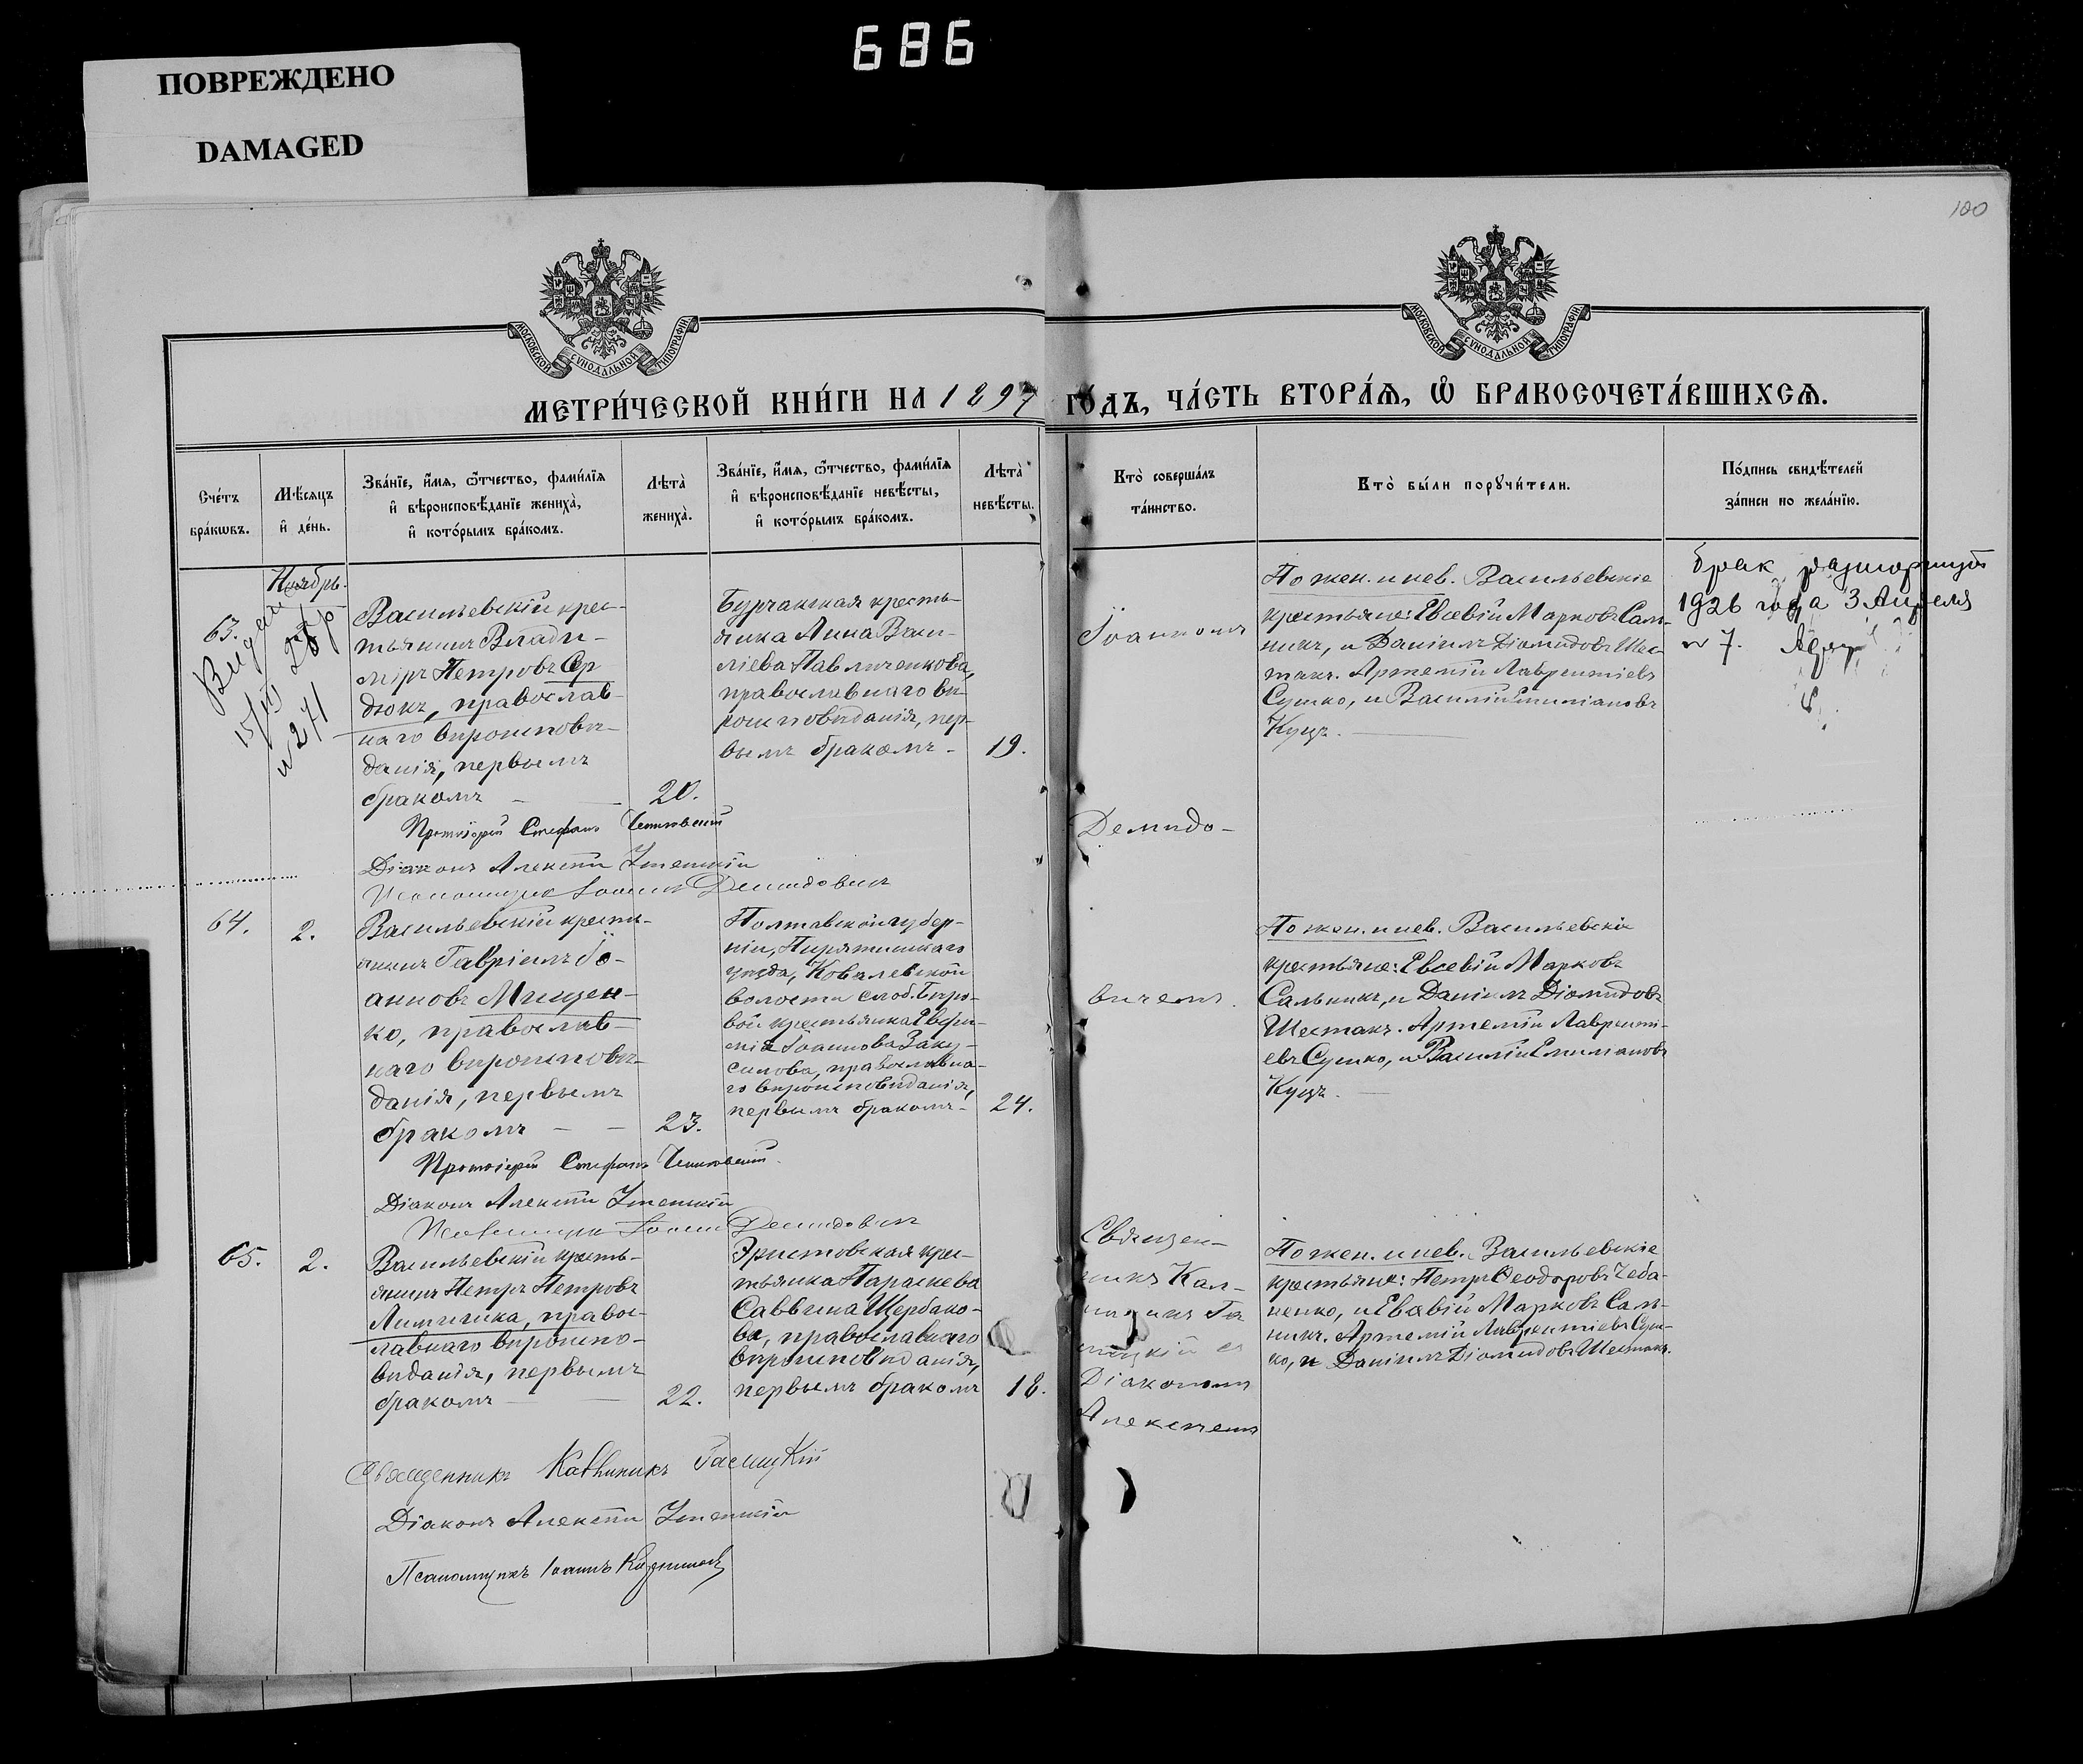 686
ПОВРЕЖДЕНО
DAMAGED
100
МОСКОВСКОЙ СѴНОДАЛЬНОЙ ТИПОГРАФІИ
МОСКОВСКОЙ СѴНОДАЛЬНОЙ ТИПОГРАФІИ
МЕТРИ́ЧЕСКОЙ КНИ́ГИ НА 1897 ГО́ДЪ, ЧА́СТЬ ВТОРА́Ѧ, Ѡ҆ БРАКОСОЧЕТА́ВШИХСѦ.
Сче́тъ
бра́кѡвъ.
Мѣ́сяцъ
и҆ де́нь.
Зва́нїе, и҆́мѧ, ѻ҆́тчество, фами́лїѧ
и҆ вѣроисповѣ́данїе жениха̀,
и҆ кото́рымъ бра́комъ.
Лѣта̀
жениха̀.
Зва́нїе, и҆́мѧ, ѻ҆́тчество, фами́лїѧ
и҆ вѣроисповѣ́данїе невѣ́сты,
и҆ кото́рымъ бра́комъ.
Лѣта̀
невѣ́сты.
Кто̀ соверша́лъ
та́инство.
Кто̀ бы́ли поручи́тели.
По́дпись свидѣ́телей
за́писи по жела́нїю.
Ноябрь.
63.
15/II
н 271
Васильевскій крес-
тьянинъ Влади-
міръ Петровъ Сер
дюкъ, православ-
наго вѣроисповѣ-
данія, первымъ
бракомъ
20.
Бурчакская кресть-
янка Анна Васи-
ліева Павличенкова,
православнаго вѣ-
роисповѣданія, пер-
вымъ бракомъ
19.
Іоанномъ
Демидо-
По жен. и нев. Васильевскіе
крестьяне: Евсевій Марковъ Саль-
никъ, и Даніилъ Діомидовъ Шес-
такъ. Артемій Лаврентіевъ
Сушко, и Василій Емиліановъ
Куцъ.
брак расторгнут
1926 года 3 Апреля
н 7.
Протоіерей Стефанъ
Діаконъ Алексѣй
Псаломщикъ Іоаннъ Демидовичъ
64.
2.
Васильевскій кресть-
янинъ Гавріилъ Іо-
анновъ Мищен-
ко, православ-
наго вѣроисповѣ-
данія, первымъ
бракомъ
23.
Полтавской губер-
ніи, Пирятинскаго
уѣзда, Ковалевской
волости слоб. Бѣро-
вой крестьянка Евфи-
мія Іоаннова Заку-
силова, православна-
го вѣроисповѣданія,
первымъ бракомъ
24.
вичемъ.
По жен. и нев. Васильевскіе
крестьяне: Евсевій Марковъ
Сальникъ, и Даніилъ Діомидовъ
Шестакъ. Артемій Лавренті-
евъ Сушко, и Василій Емиліановъ
Куцъ.
Протоіерей Стефанъ
Діаконъ Алексѣй
Псаломщикъ Іоаннъ Демидовичъ
65.
2.
Васильевскій кресть-
янинъ Петръ Петровъ
православнаго вѣроиспо-
вѣданія, первымъ
бракомъ
22.
Эристовская крес-
тьянка Параскева
Саввина Щербако-
ва, православнаго
вѣроисповѣданія,
первымъ бракомъ
18.
Священ-
Діакономъ
Алексѣемъ
По жен. и нев. Васильевскіе
крестьяне: Петръ Ѳеодоровъ Чеба-
ненко, и Евсевій Марковъ Саль-
никъ. Артемій Лаврентіевъ Суш-
ко, и Даніилъ Діомидовъ Шестакъ.
Священникъ
Діаконъ Алексѣй
Псаломщикъ Іоаннъ